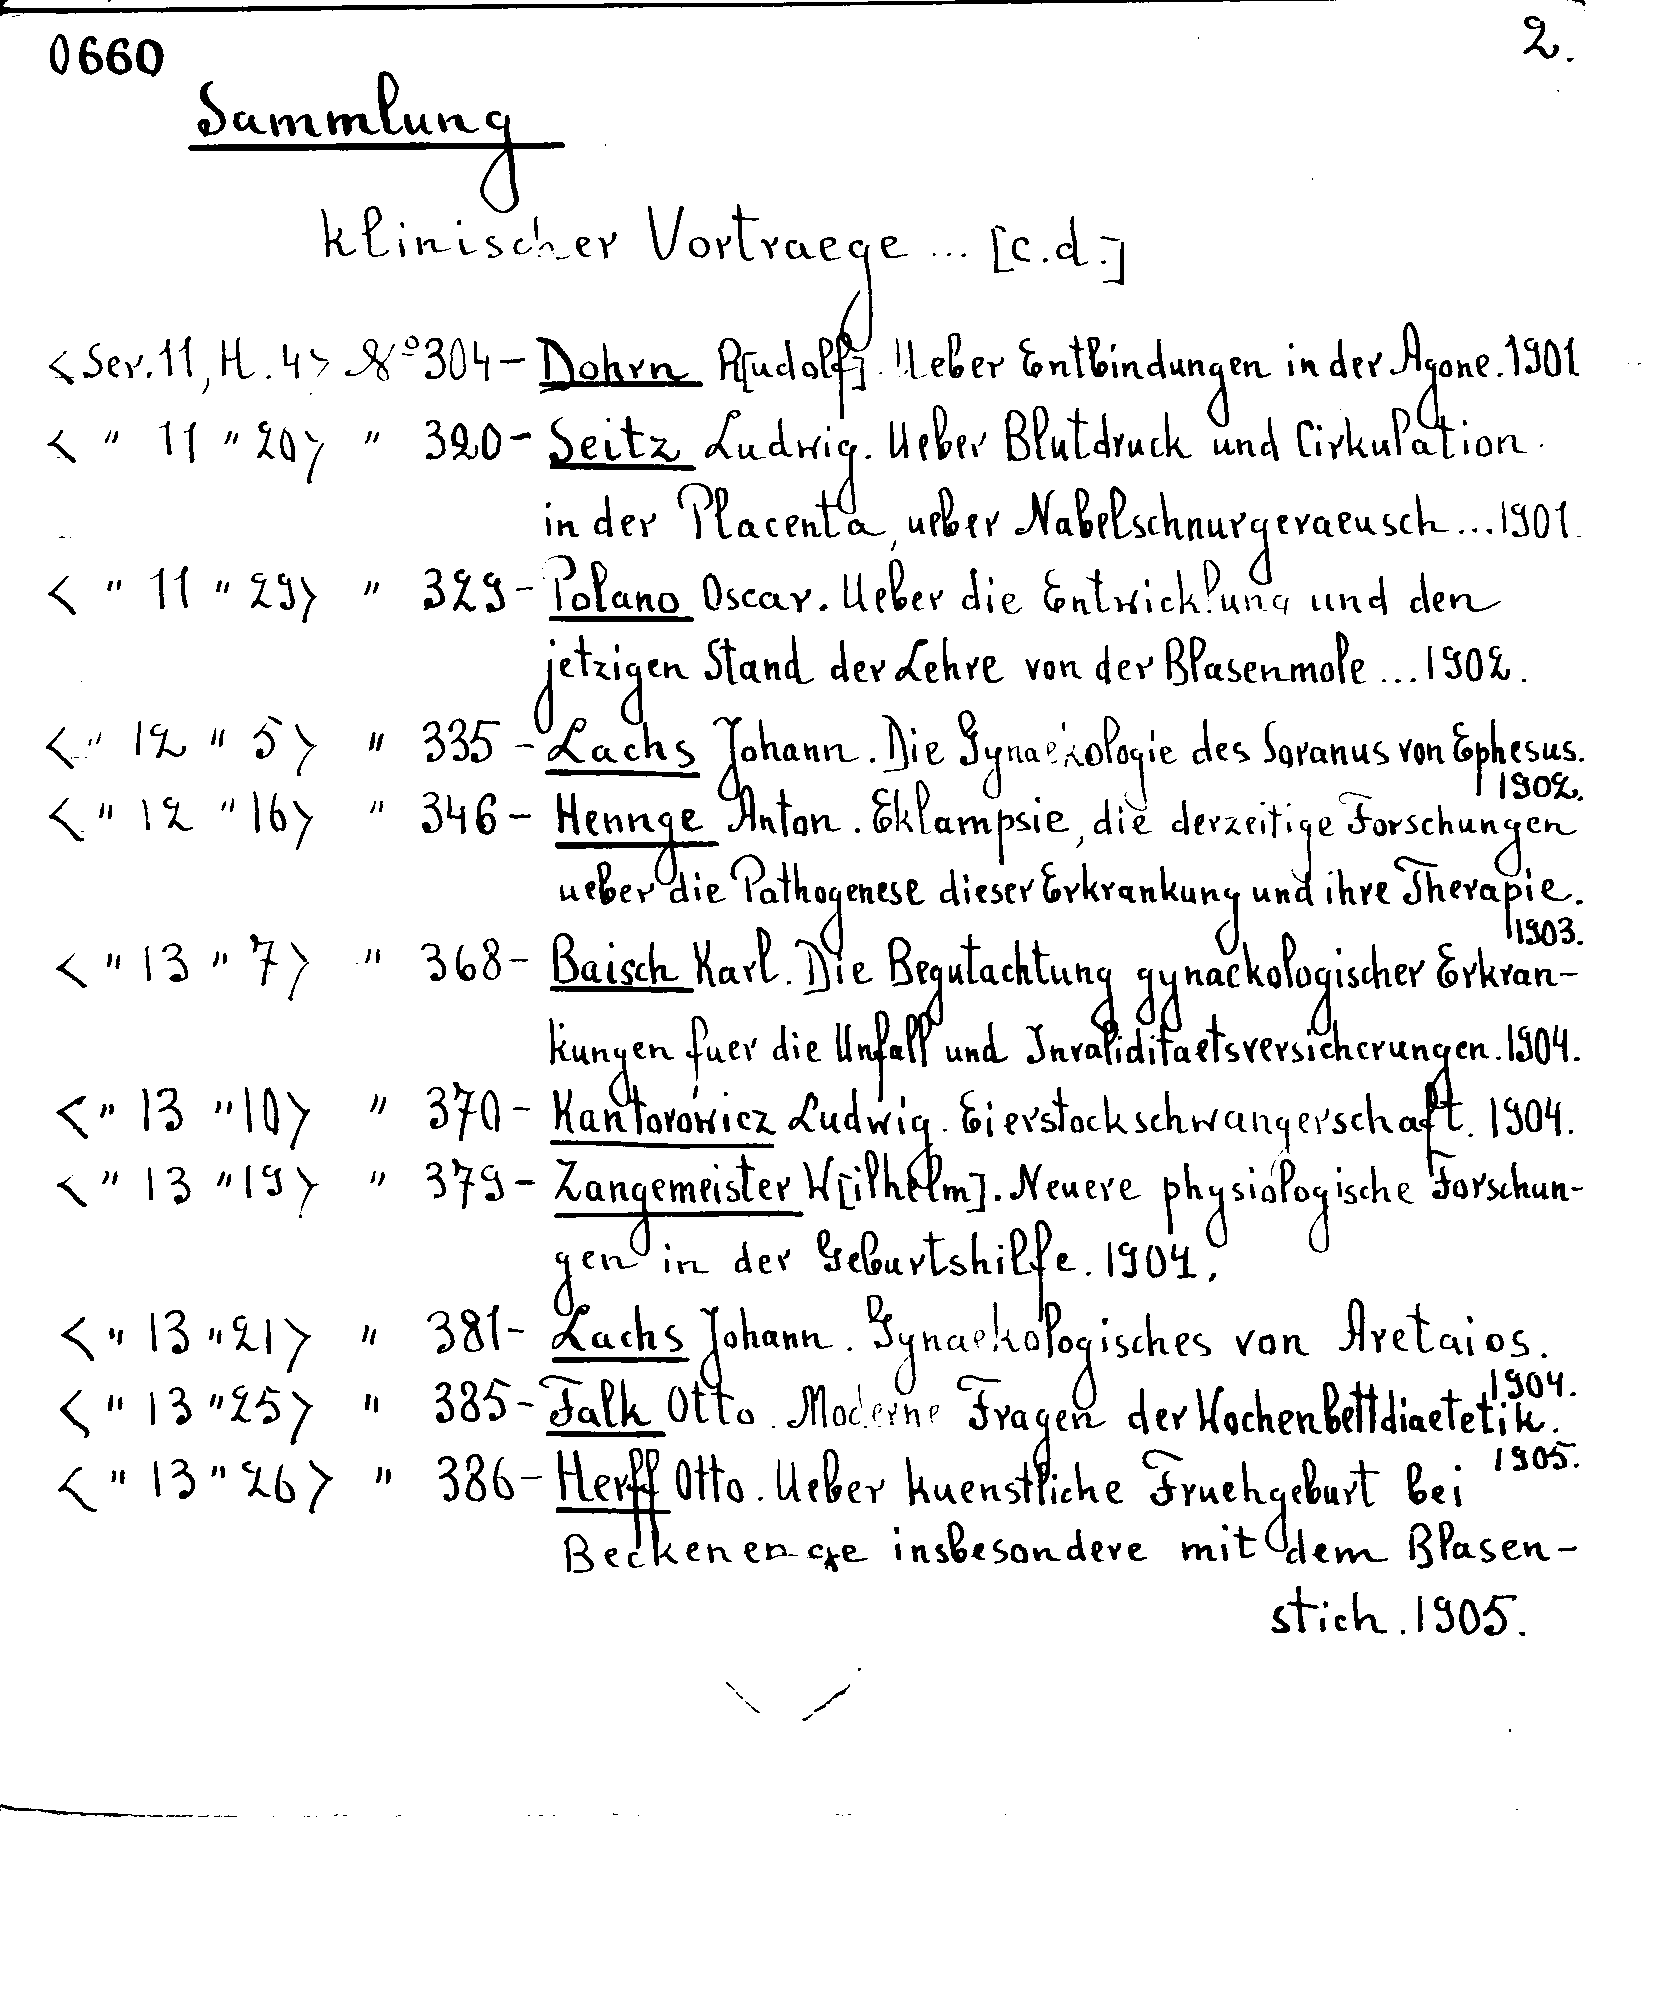 0660
2.
Sammlung
klinischer Vortraege ... [c.d.]
<Ser. 11, H. 4> No 304 - Dohrn R[udolf]. Ueber Entbindungen in der Agone. 1901
< " 11 " 20> " 320 - Seitz Ludwig. Ueber Blutdruck und Cirkulation
in der Placenta, ueber Nabelschnurgeraeusch ... 1901.
< " 11 " 29> " 329 - Polano Oscar. Ueber die Entwicklung und den
jetzigen Stand der Lehre von der Blasenmole ... 1902.
< " 12 " 5> " 335 - Lachs Johann. Die Gynaekologie des Soranus von Ephesus.
1902.
< " 12 " 16> " 346 - Hennge Anton. Eklampsie, die derzeitige Forschungen
ueber die Pathogenese dieser Erkrankung und ihre Therapie.
1903.
< " 13 " 7> " 368 - Baisch Karl. Die Begutachtung gynaekologischer Erkran-
kungen fuer die Unfall und Invaliditaetsversicherungen. 1904.
< " 13 " 10> " 370 - Kantorowicz Ludwig. Eierstockschwangerschaft. 1904.
< " 13 " 19> " 379 - Zangemeister W[ilhelm]. Neuere physiologische Forschun-
gen in der Geburtshilfe. 1904.
< " 13 " 21> " 381 - Lachs Johann. Gynaekologisches von Aretaios.
1904.
< " 13 " 25> " 385 - Falk Otto. Moderne Fragen der Wochenbettdiaetetik.
1905.
< " 13 " 26> " 386 - Herff Otto. Ueber kuenstliche Fruehgeburt bei
Beckenenge insbesondere mit dem Blasen-
stich. 1905.